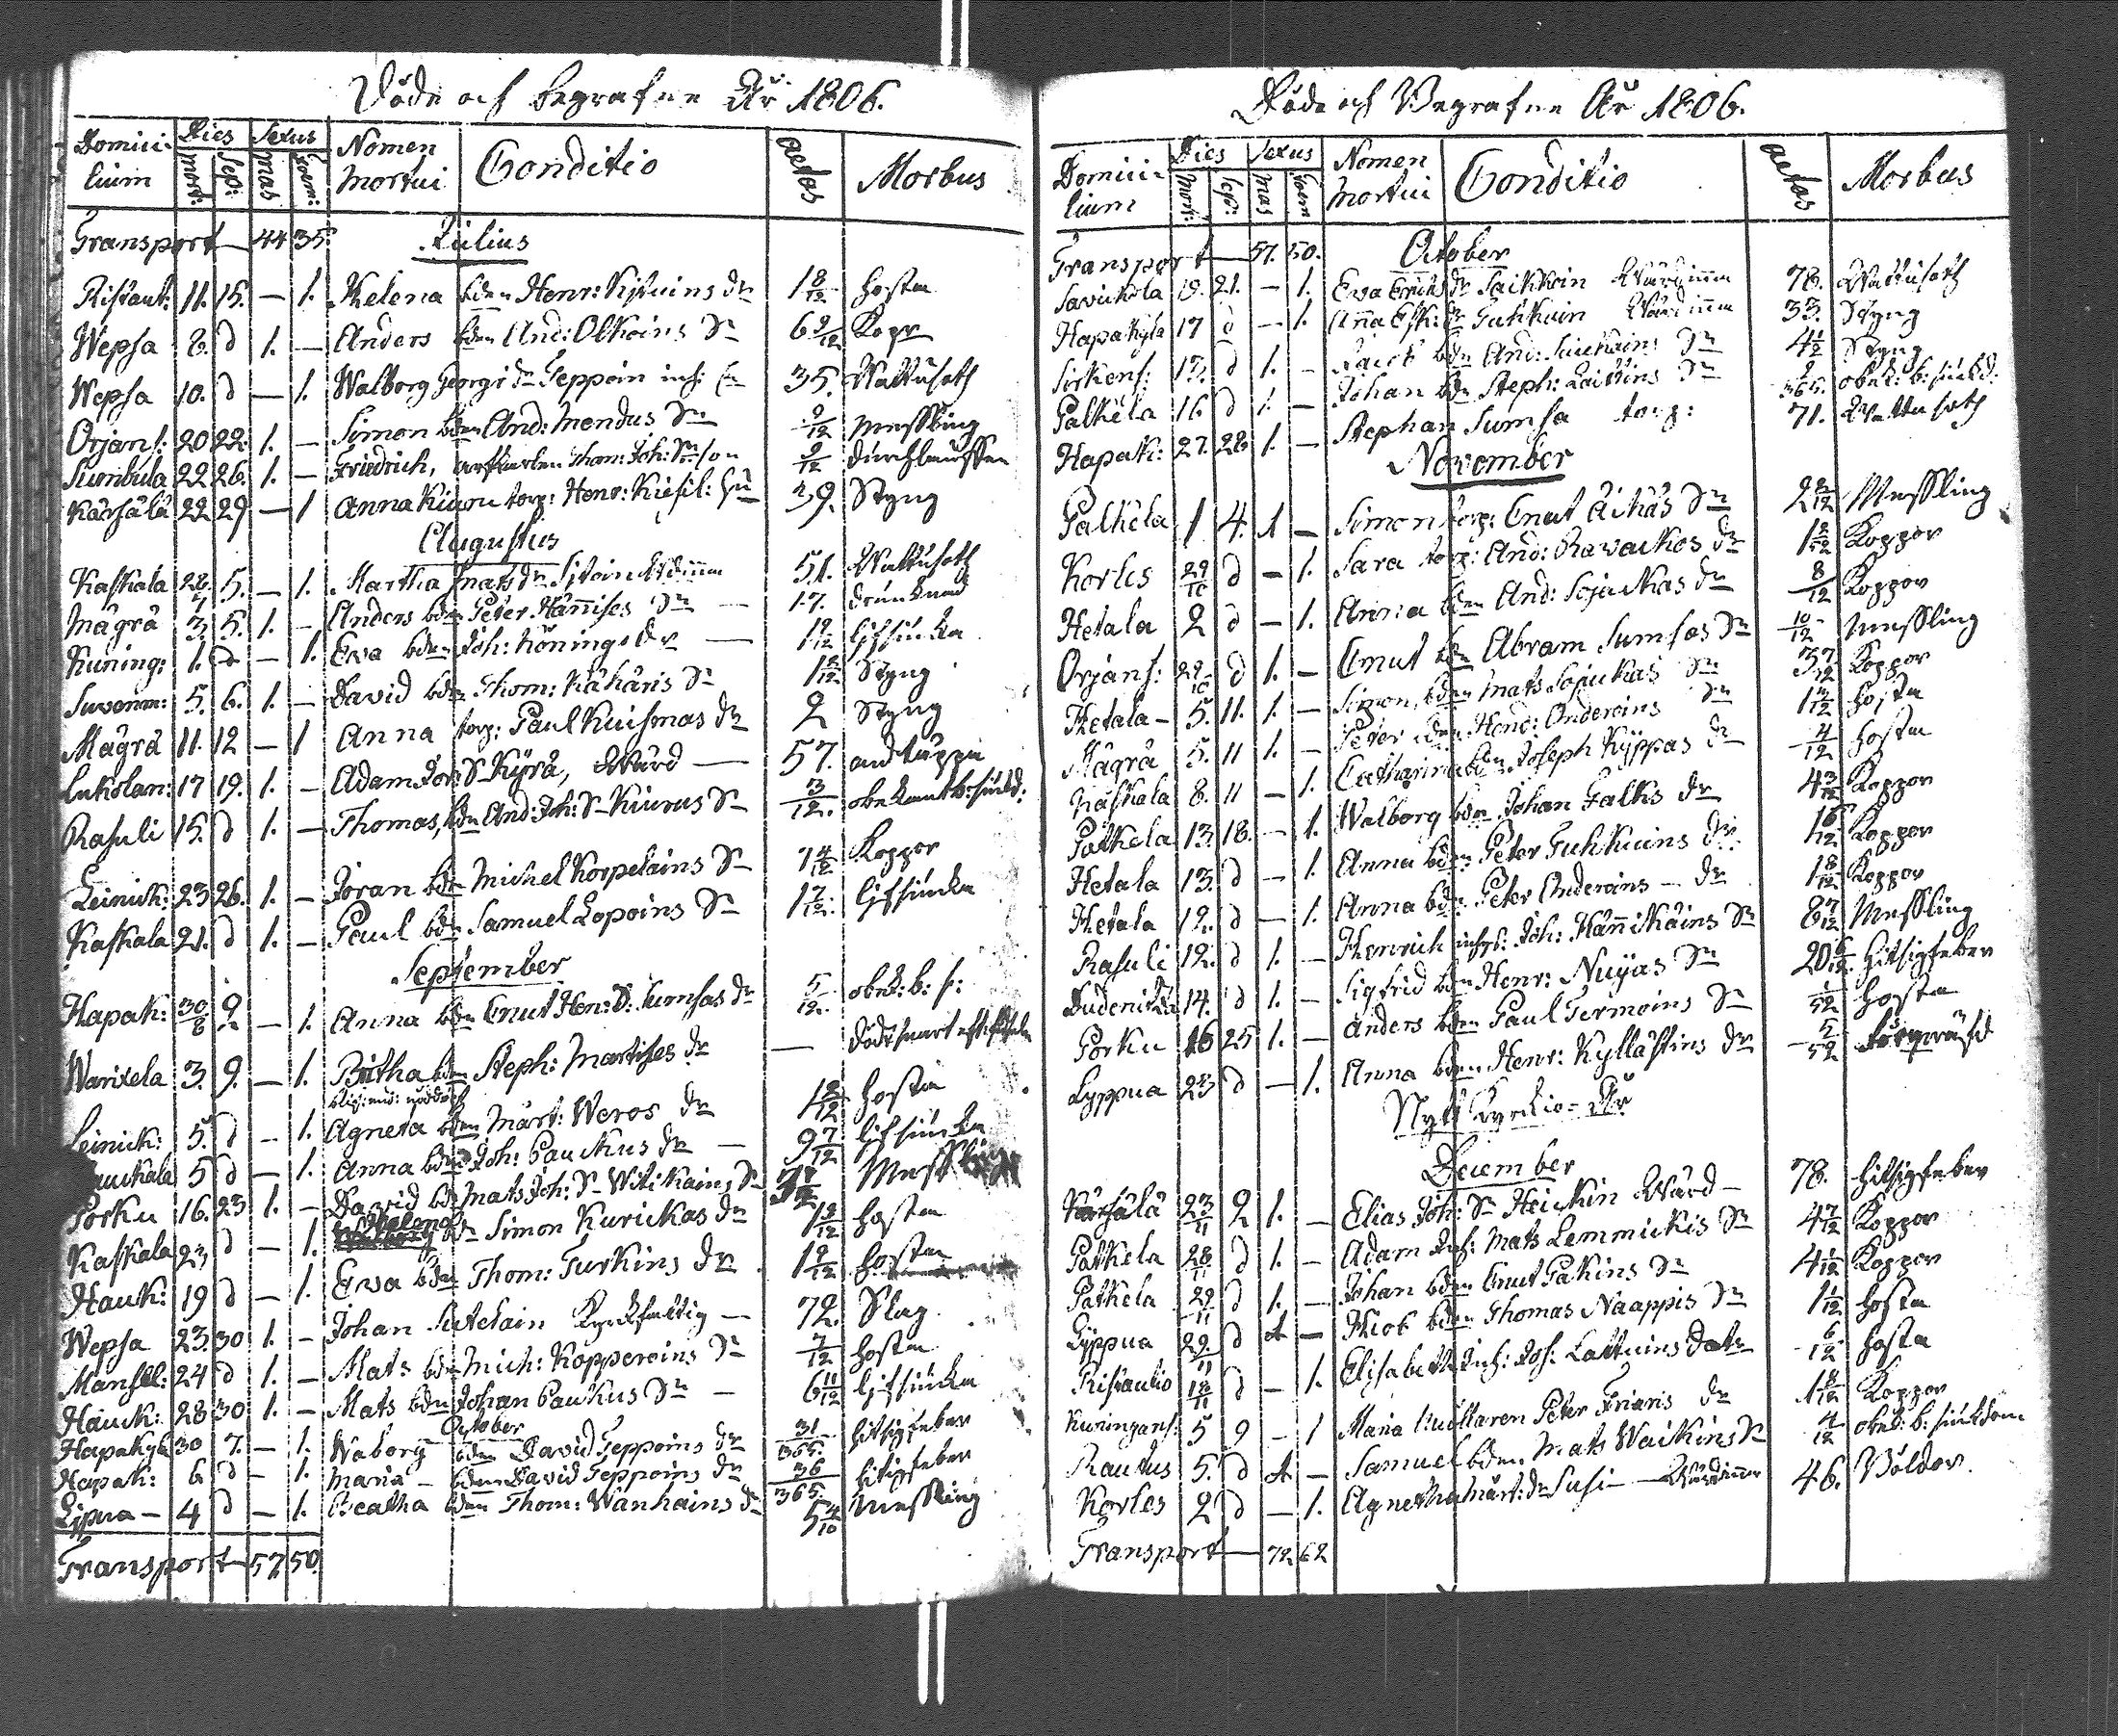 Döde och begrafne År 1806.
Domicilium Dies mort: Sep: Sexus mas foem: Nomen mortui Conditio aetas Morbus
Transport 44 35. Julius
Ristaut: 11. 15. — 1. Helena bden Henr: dr 1 8/12 hosta
Wepsa 8. d 1. — Anders bden And: Olkoins Sn 6 9/12 Kopr
Wepsa 10. d — 1. Walborg Georgi dr Seppoin inh: 35. Wattusoth
Orjans: 20 22. 1. — Simon bden And: Mondus Sn 9/12 Messling
Sumbula 22 26. 1. — Friedrich, Thom: Joh: Sn son 9/12
Kärsälä 22 29 — 1 Anna Kiuru torp: Henr: 39. Styng
Augustus
Kaskala 28/7 5. — 1. Martha Mats dr Wärdinna 51. Wattusoth
Mägrä 3. 5. 1. — Anders bden Peter Hännises Sn — 17. drunknad
Kuning: 1. d — 1. Eva bden Joh: Könings dr — 1 9/12 lifsiuka
Suvenm: 5. 6. 1. — David bden Thom: Kähäris Sn 1 8/12 Styng
Mägrä 11. 12 — 1 Anna torp: Paul Kuismas dr 2 Styng
Lukolan: 17 19. 1. — Adam Jor: Sn Kyrä, Wärd — 57. andtäppa
Rasuli 15. d 1. — Thomas, bden And: Joh: Sn Kiurus Sn 3/12. obekant b: siukd:
Leinick: 23 26. 1. — Joran bden Michel Korpelains Sn 7 4/12 Koppor
Kaskala 21. d 1. — Paul bden Samuel Lopoins Sn 1 7/12. lifsiuka
September
Hapak: 30/8 9 — 1. Anna bden Cnut Hen: S: Sumsas dr 5/12. obek: b: s:
Warixela 3. 9. — 1. Britha bden Steph: Martises dr — död snart eft:
Leinick: 5. d — 1. Agneta bden Mårt: Weros dr 1 8/12 hosta
Hauckala 5 d — 1. Anna bden Joh: Pauckus dr — 9 7/12 lifsiuka
Porku 16. 23 1. — David bden Mats Joh: Sn Witikains Sn Messling
Kaskala 23 d — 1. Helena bden Simon Kurickas dr 1 9/12 hosta
Hauk: 19 d — 1. Eva bden Thom: Turkins dr 1 9/12 hosta
Wepsa 23. 30 1. — Johan Sutelain Kyrkfattig — 72. Slag
Mansell: 24 d 1. — Mats bden Mich: Kopperoins Sn 7/12 hosta
Hauk: 28 30 1. — Mats bden Johan Paukus Sn — 6 11/12 lifsiuka
October
Hapakyl: 30 7. — 1. Waborg bden David Seppoins dr 31/365. hitsigfeber
Hapak: 6 d — 1. Maria — bden David Seppoins dr 36/365. hitsigfeber
Lipua — 4 d — 1. Beatha bden Thom: Wanhains dr Messling
Transport — 57. 50.
Döde och Begrafne År 1806.
Domicilium Dies Mort: Sep: Sexus Mas Foem Nomen Mortui Conditio aetas Morbus
Transport — 57. 50. October
Savickola 19. 21. — 1. Eva dr Saikkoin Wärdinna 78. Wattusoth
Hapakyla 17 d — 1. Anna Esk: dr Tuhkuin Wärdinna 33. Styng
Sirkens: 13. d 1. — Jacob bden And: Sn Styng
Patkela 16. d 1. — Johan bden Steph: Sn obek: b: siukd:
Hapak: 27. 28 1. — Stephan Sumsa torp: 71. Wattusoth
November
Patkela 1 4. 1 — Simon torp: Cnut Äikäs Sn 2 8/12 Messling
Korles 29/10 d — 1. Sara torp: And: Rawaskos dr Koppor
Hetala 2 d — 1. Anna bden And: Sojackas dr 8/12 Koppor
Orjans: 29/10 d 1. — Cnut bden Abram Sumsas Sn 10/12 Messling
Hetala — 5. 11. 1. — Simon, bden Mats Sojuckas Sn 3 7/12 Koppor
Mägrä 5. 11 1. — Peter bden Hend: Onderoins Sn hosta
Kaskala 8. 11 — 1. Catharina bden Joseph Kyppas dr 4/12 hosta
Patkela 13. 18. — 1. Walborg bden Johan Falks dr 4 3/12 Koppor
Hetala 13. d — 1. Anna bden Peter Tuhkuins dr 1 6/12 Koppor
Hetala 12. d — 1. Anna bden Peter Onderoins — dr 1 8/12 Koppor
Rasuli 12. d 1. — Henrich inhys: Joh: Hännikäins Sn 8 7/12 Messling
14. d 1. — Sigfrid bden Henr: Nuijas Sn 20 6/12. hitsigfeber
Porku 16 25 1. — Anders bden Paul Termoins Sn 1/52 hosta
Lyppua 23 d — 1. Anna bden Henr: Kyllästins dr
Nytt Kyrckio-År
December
Kärsälä 23/11 2 1. — Elias Joh: Sn Heickin Wärd — 78. hitsigfeber
Patkela 28/11 d 1. — Adam Inh: Mats Lemmickis Sn 4 7/12 Koppor
Patkela 29/11 d 1. — Johan bden Cnut Pakins Sn 4 1/12 Koppor
Lyppua 29/11 d 1 — Hiob bden Thomas Naappis Sn 1 1/12 hosta
Ristaulio 18/11 d — 1. Elisabeth Inh: Joh: Lattuins dotr 6/12 hosta
Kuningans: 5 9 — 1 Maria Peter Friaris dr 1 8/12 Koppor
Rautus 5. d 1 — Samuel bden Mats Waikins Sn 4/12 obek: b: siukdom
Korles 2 d — 1. Agnetha Mårt: dr Susi — Wärdinna 46. Bölder.
Transport — 72 62